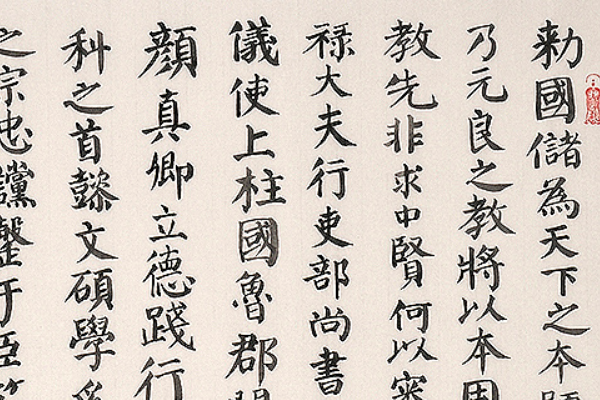 勅國儲為天下之本
乃元良之教將以本
教先非求中賢何以審
祿大夫行吏部尚書
儀使上柱國魯郡
顏真卿立德踐行
科之首懿文碩學
之宗忠讜罄于臣